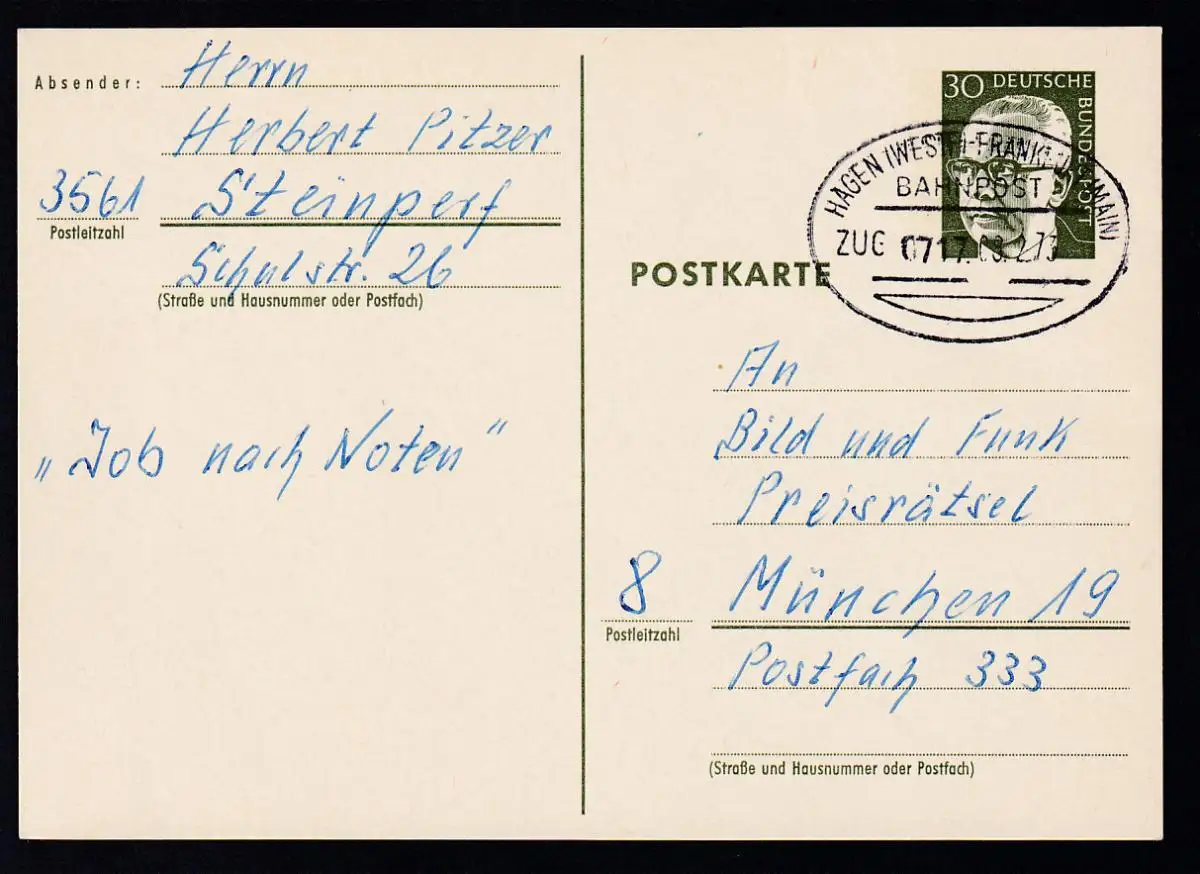 Absender: Herrn
Herbert Pitzer
3561 Steinperf
Postleitzahl
Schulstr. 26
(Straße und Hausnummer oder Postfach)
„Job nach Noten“
30 DEUTSCHE
BUNDESPOST
HAGEN (WESTF)-FRANKFURT (MAIN)
BAHNPOST
ZUG 0717. 08.2.73
POSTKARTE
An
Bild und Funk
Preisrätsel
8 München 19
Postleitzahl
Postfach 333
(Straße und Hausnummer oder Postfach)